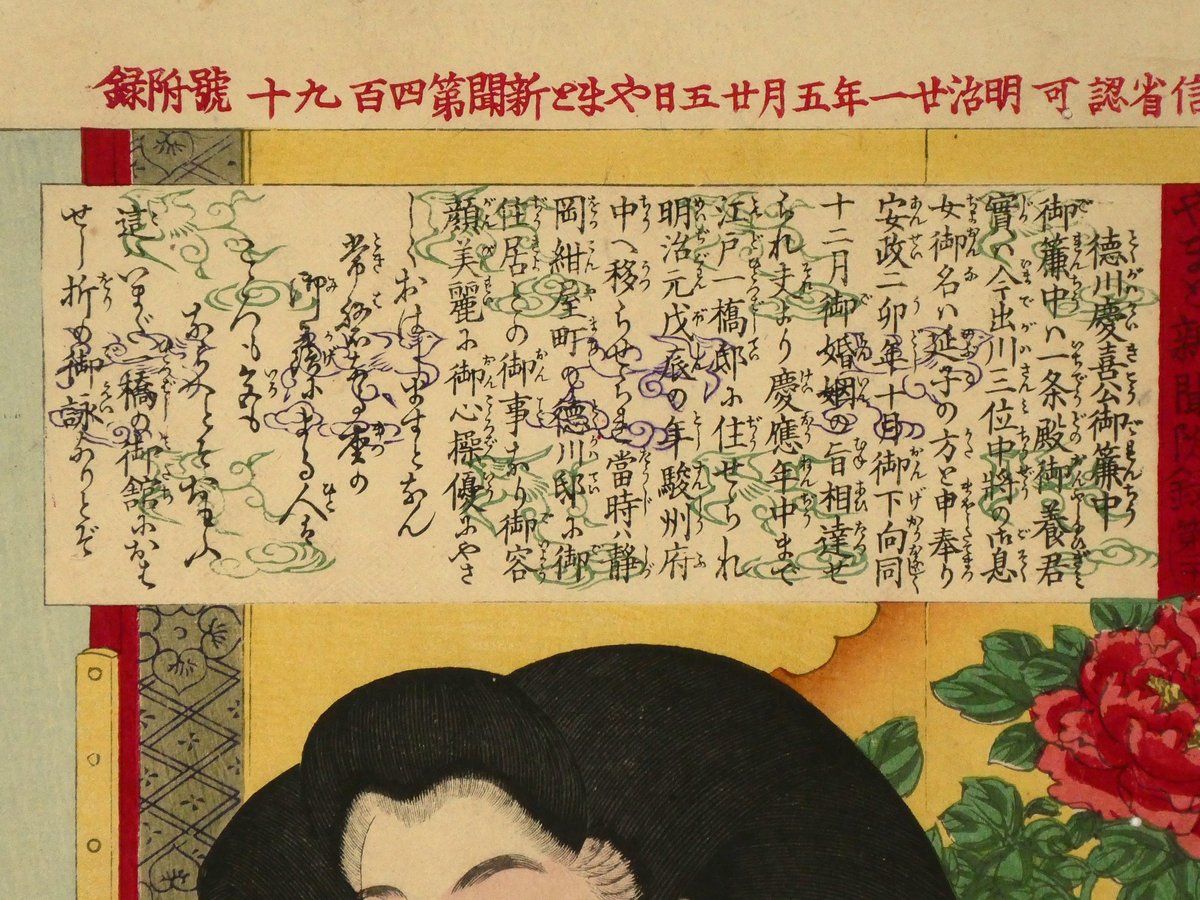 信省認可 明治廿一年五月廿五日やまと新聞第四百九十號附録
やまと新聞附録第
徳川慶喜公御簾中
御簾中ハ一条殿御養君
實ハ今出川三位中將の御息
女御名ハ延子の方と申奉り
安政二卯年十月御下向同
十二月御婚姻の旨相達せ
られ夫より慶應年中まで
江戸一橋邸に住せられ
明治元戊辰の年駿州府
中へ移らせ當時ハ静
岡紺屋町の徳川邸に御
住居との御事なり御容
顔美麗に御心操優にやさ
しくおはしますとなん
常磐なる
御蔭に人は
こゝろも色も
とそおもふ
這ハいまだ一橋の御舘におは
せし折の御詠なりとぞ